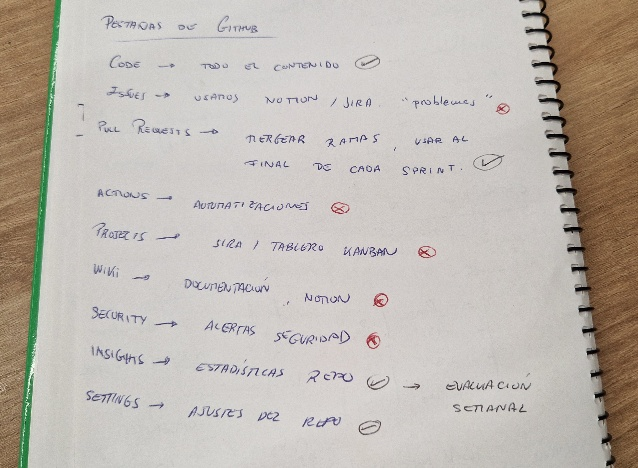 PESTAÑAS DE GITHUB
CODE → TODO EL CONTENIDO ✓
ISSUES → USAMOS NOTION / JIRA. "problemas" ✗
PULL REQUESTS → MERGEAR RAMAS, USAR AL
FINAL DE CADA SPRINT. ✓
ACTIONS → AUTOMATIZACIONES ✗
PROJECTS → JIRA / TABLERO KANBAN ✗
WIKI → DOCUMENTACIÓN, NOTION ✗
SECURITY → ALERTAS SEGURIDAD ✗
INSIGHTS → ESTADÍSTICAS REPO ✓ → EVALUACIÓN
SEMANAL
SETTINGS → AJUSTES DEL REPO ✓